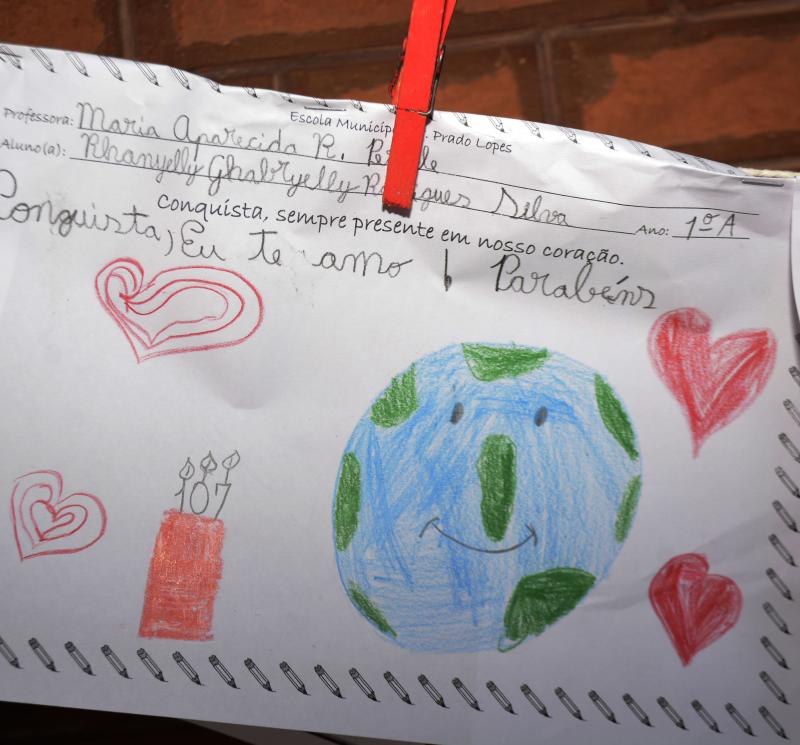 Escola Municip Prado Lopes
Professora: Maria Aparecida R.
Aluno(a): Rhanyelly Ghabryelly Silva Ano: 1º A
Conquista, sempre presente em nosso coração.
Conquista, Eu te amo Parabéns
107